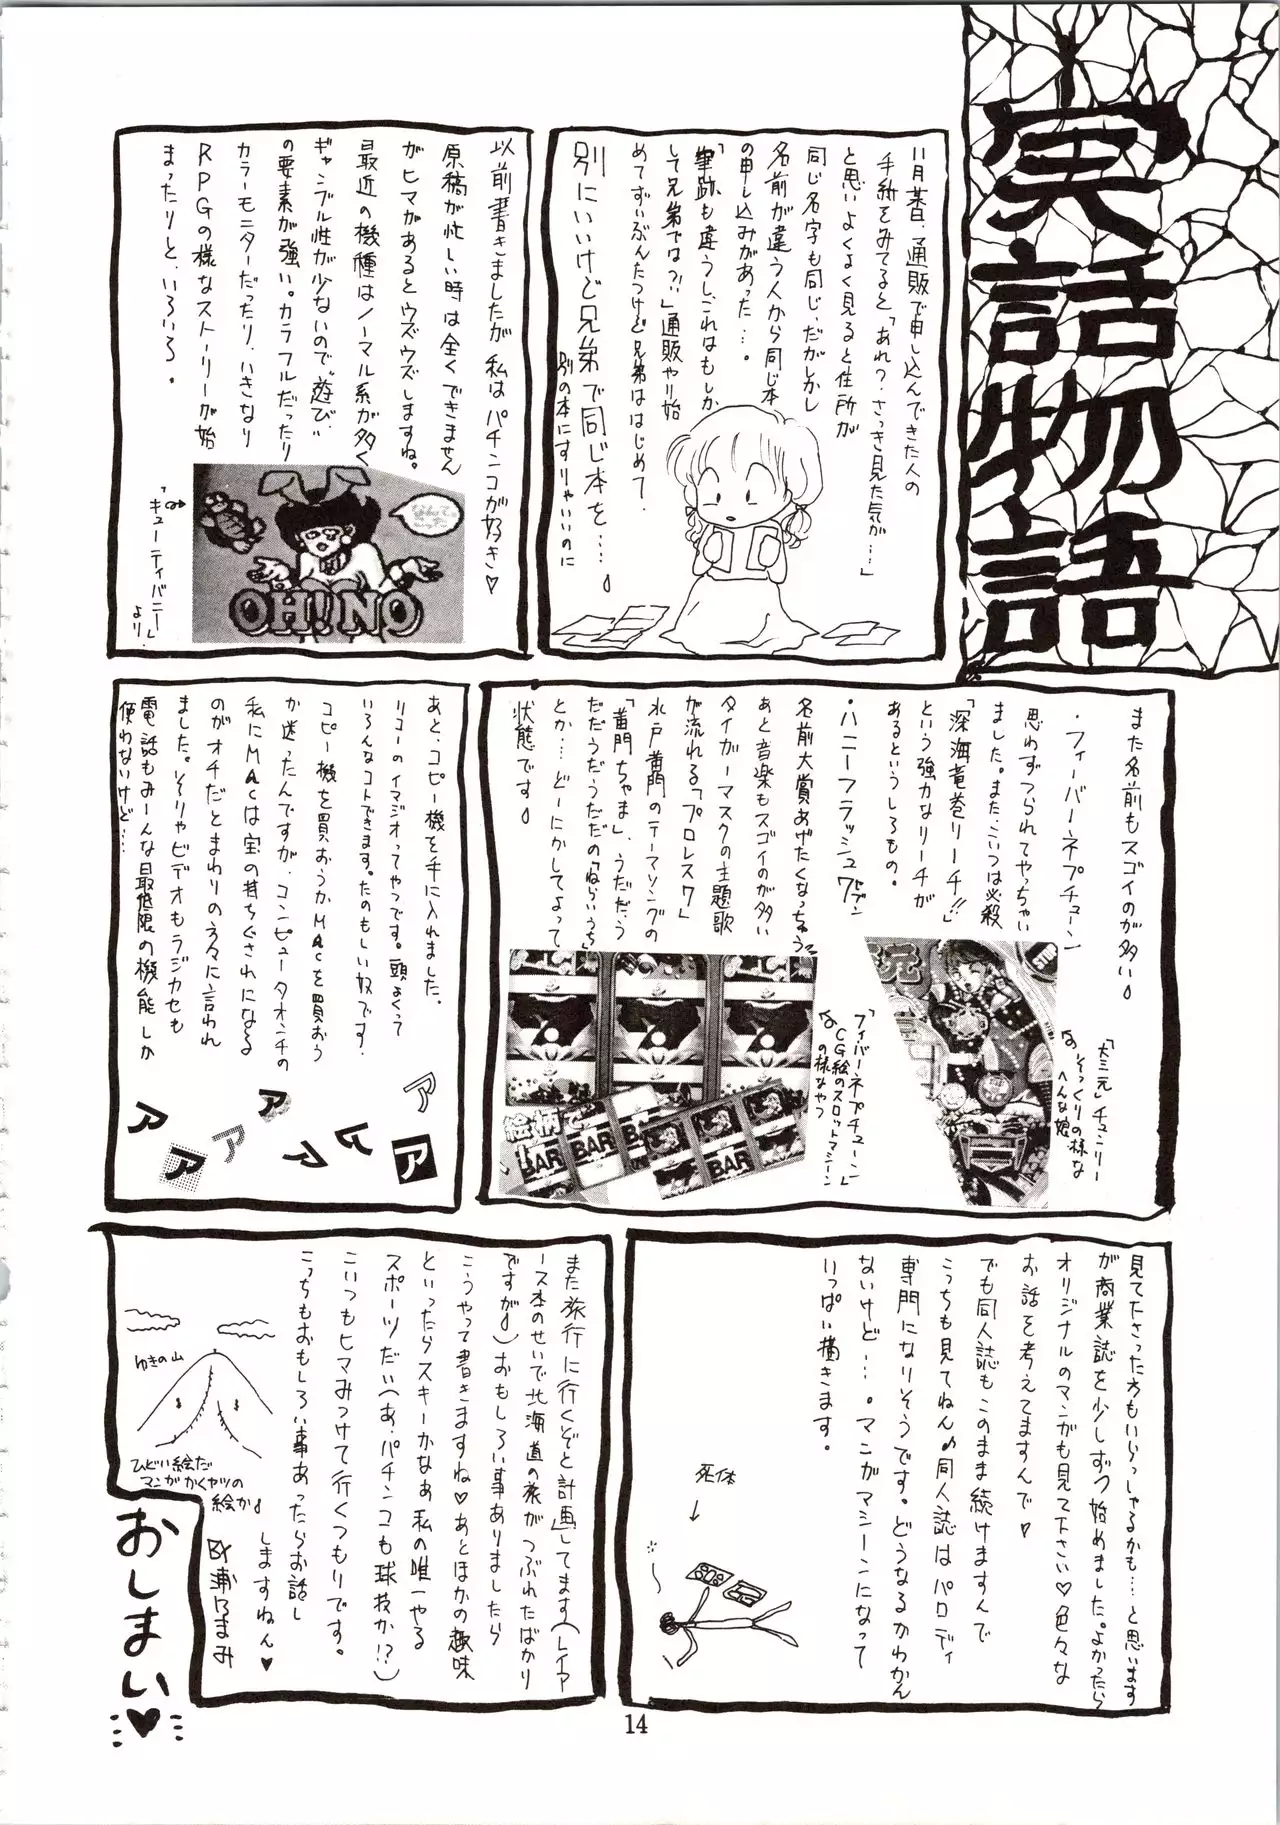 実話物語
11月某日、通販で申し込んできた人の
手紙をみてると「あれ?さっき見た気が…」
と思いよくよく見ると住所が
同じ名字も同じ、だがしかし
名前が違う人から同じ本
の申し込みがあった…。
「筆跡も違うしこれはもしか
して兄弟では?!」通販やり始
めてずいぶんたつけど兄弟ははじめて。
別にいいけど兄弟で同じ本を……
別の本にすりゃいいのに
以前書きましたが私はパチンコが好き♡
原稿が忙しい時は全くできません
がヒマがあるとウズウズしますね。
最近の機種はノーマル系が多く
ギャンブル性が少ないので"遊び"
の要素が強い。カラフルだったり
カラーモニターだったり、いきなり
RPGの様なストーリーが始
まったりと、いろいろ。
なんて。
こった
OH!NO
「キューティバニー」
より
また名前もスゴイのが多い
・フィーバーネプチューン
思わずつられてやっちゃい
ました。また、こいつは必殺
「深海竜巻リーチ!!」
という強力なリーチが
あるというしろもの。
・ハニーフラッシュ7セブン
名前大賞あげたくなっちゃう
あと音楽もスゴイのが多い
タイガーマスクの主題歌
が流れる「プロレスワ」
水戸黄門のテーマソングの
「黄門ちゃま」、うだだだう
だだうだうだだの「ねらいうち」
とか…どーにかしてよって
状態です
「大三元」チューリー
そっくりの様な
へんな娘
「フィーバーネプチューン」
CG絵のスロットマシーン
の様なやつ
絵柄で
BAR
BAR
BAR
あと、コピー機を手に入れました。
リコーのイマジオってやつです。頭よくって
いろんなコトできます。たのもしい奴です。
コピー機を買おうかMACを買おう
か迷ったんですが、コンピュータオンチの
私にMACは宝の持ちぐされになる
のがオチだとまわりの方々に言われ
ました。そりゃビデオもラジカセも
電話もみーんな最低限の機能しか
使わないけど…
ア
ア
ア
ア
ア
ア
ア
ア
見て下さった方もいらっしゃるかも…と思います
が商業誌を少しずつ始めました。よかったら
オリジナルのマンガも見て下さい♡色々な
お話を考えてますんで♡
でも同人誌もこのまま続けますんで
こっちも見てねん♪同人誌はパロディ
専門になりそうです。どうなるかわかん
ないけど…。マンガマシーンになって
いっぱい描きます。
死体
また旅行に行くぞと計画してます(レイア
ース本のせいで北海道の旅がつぶれたばかり
ですが)おもしろい事ありましたら
こうやって書きますね♡あとほかの趣味
といったらスキーかなぁ私の唯一やる
スポーツだい(あ、パチンコも球技か!?)
こいつもヒマみつけて行くつもりです。
こっちもおもしろい事あったらお話し
しますねん♥
ゆきの山
ひどい絵だ
マンガかくヤツの
絵か
おしまい♥
14